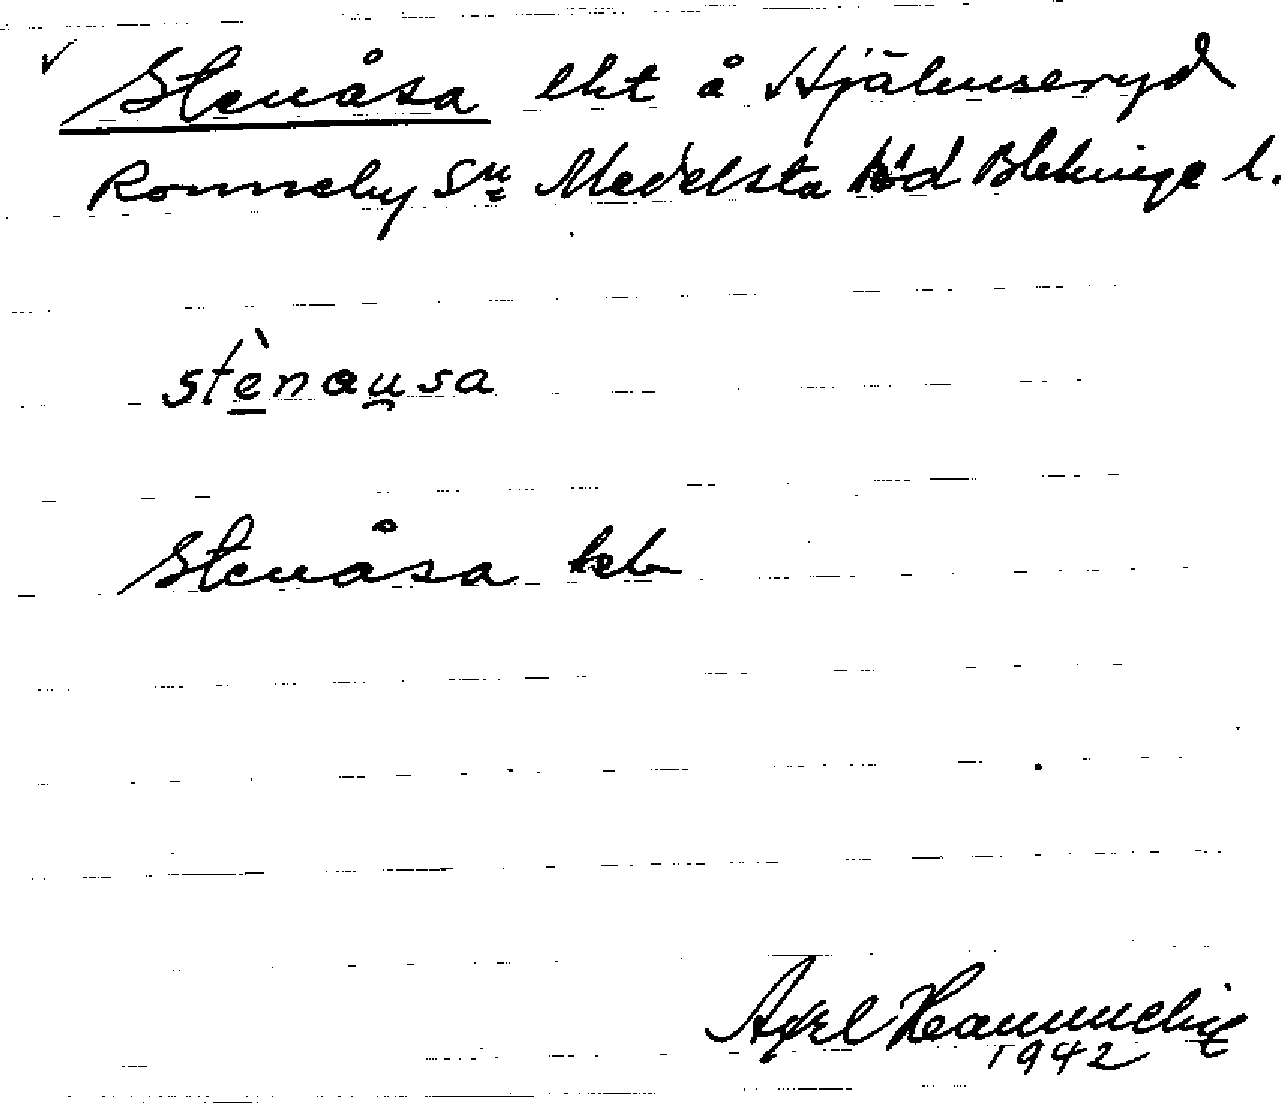 Stenåsa lht å Hjälmseryd
Ronneby Sn Medelsta hd Blekinge l.
stènau̯sa
Stenåsa
Axel
1942